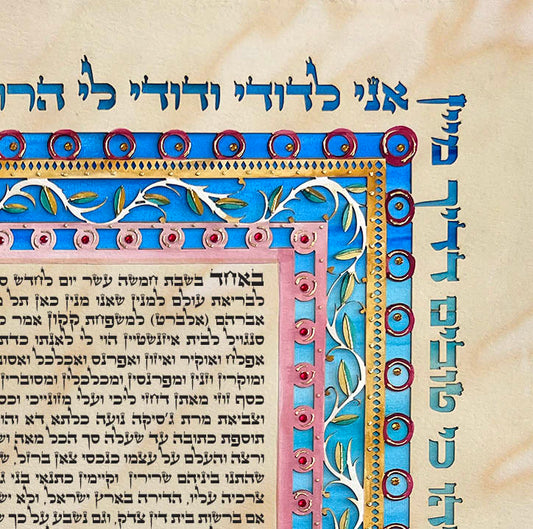 אני לדודי ודודי לי הרו
כי טובים דדיך מיין
באחד בשבת חמשה עשר יום לחדש
לבריאת עולם למנין שאנו מנין כאן תל
אברהם (אלברט) למשפחת קקון אמר
סגוויל לבית איזנשטיין הוי לי לאנתו כדת
אפלח ואוקיר ואיזון ואפרנס ואכלכל ואסו
ומוקרין וזנין ומפרנסין ומכלכלין ומסוברין
כסף זוזי מאתן דחזי ליכי ועלי מזונייכי
וצביאת מרת ג'סיקה נועה כלתא דא והו
תוספת כתובה עד שעלה סך הכל מאה
ורצה והעלם על עצמו כנכסי צאן ברזל,
שהתנו ביניהם שרירין וקיימין כתנאי בני
צרכיה עליו, הדירה בארץ ישראל, ולא
אם ברשות בית דין צדק, וגם נשבע על כך